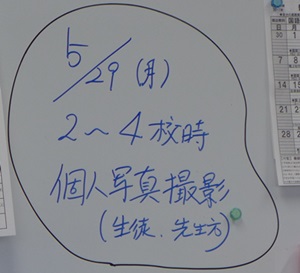 5/29(月)
2~4校時
個人写真撮影
(生徒、先生方)